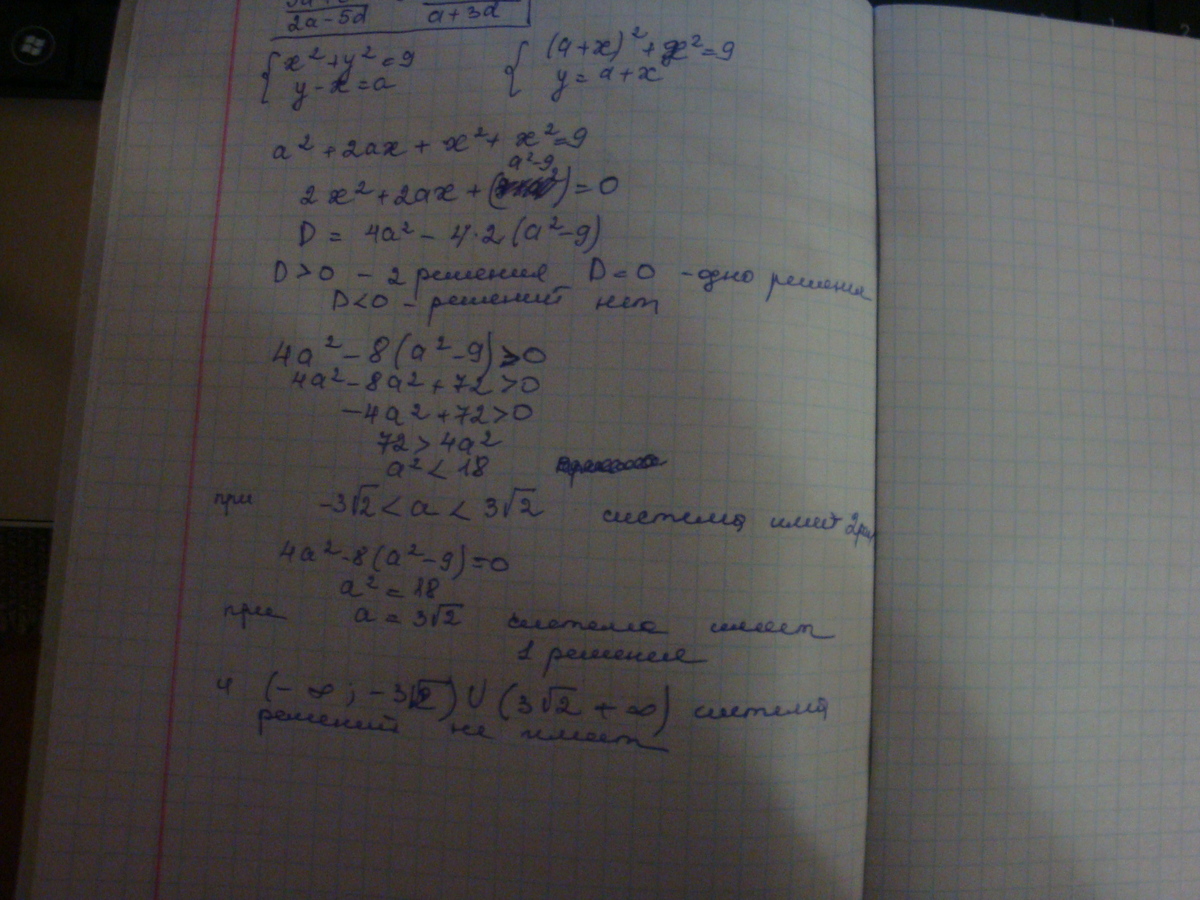 2a-5d a+3d
{ x²+y²=9 { (a+x)²+x²=9
y-x=a y=a+x
a²+2ax+x²+x²=9
a²-9
2x²+2ax+( )=0
D = 4a² - 4·2(a²-9)
D>0 - 2 решения D=0 - одно решения
D<0 - решений нет
4a²-8(a²-9)>0
4a²-8a²+72>0
-4a²+72>0
72>4a²
a²<18
при -3√2<a<3√2 система имеет 2
4a²-8(a²-9)=0
a²=18
при a=3√2 система имеет
1 решение
и (-∞;-3√2)∪(3√2 +∞) система
решений не имеет